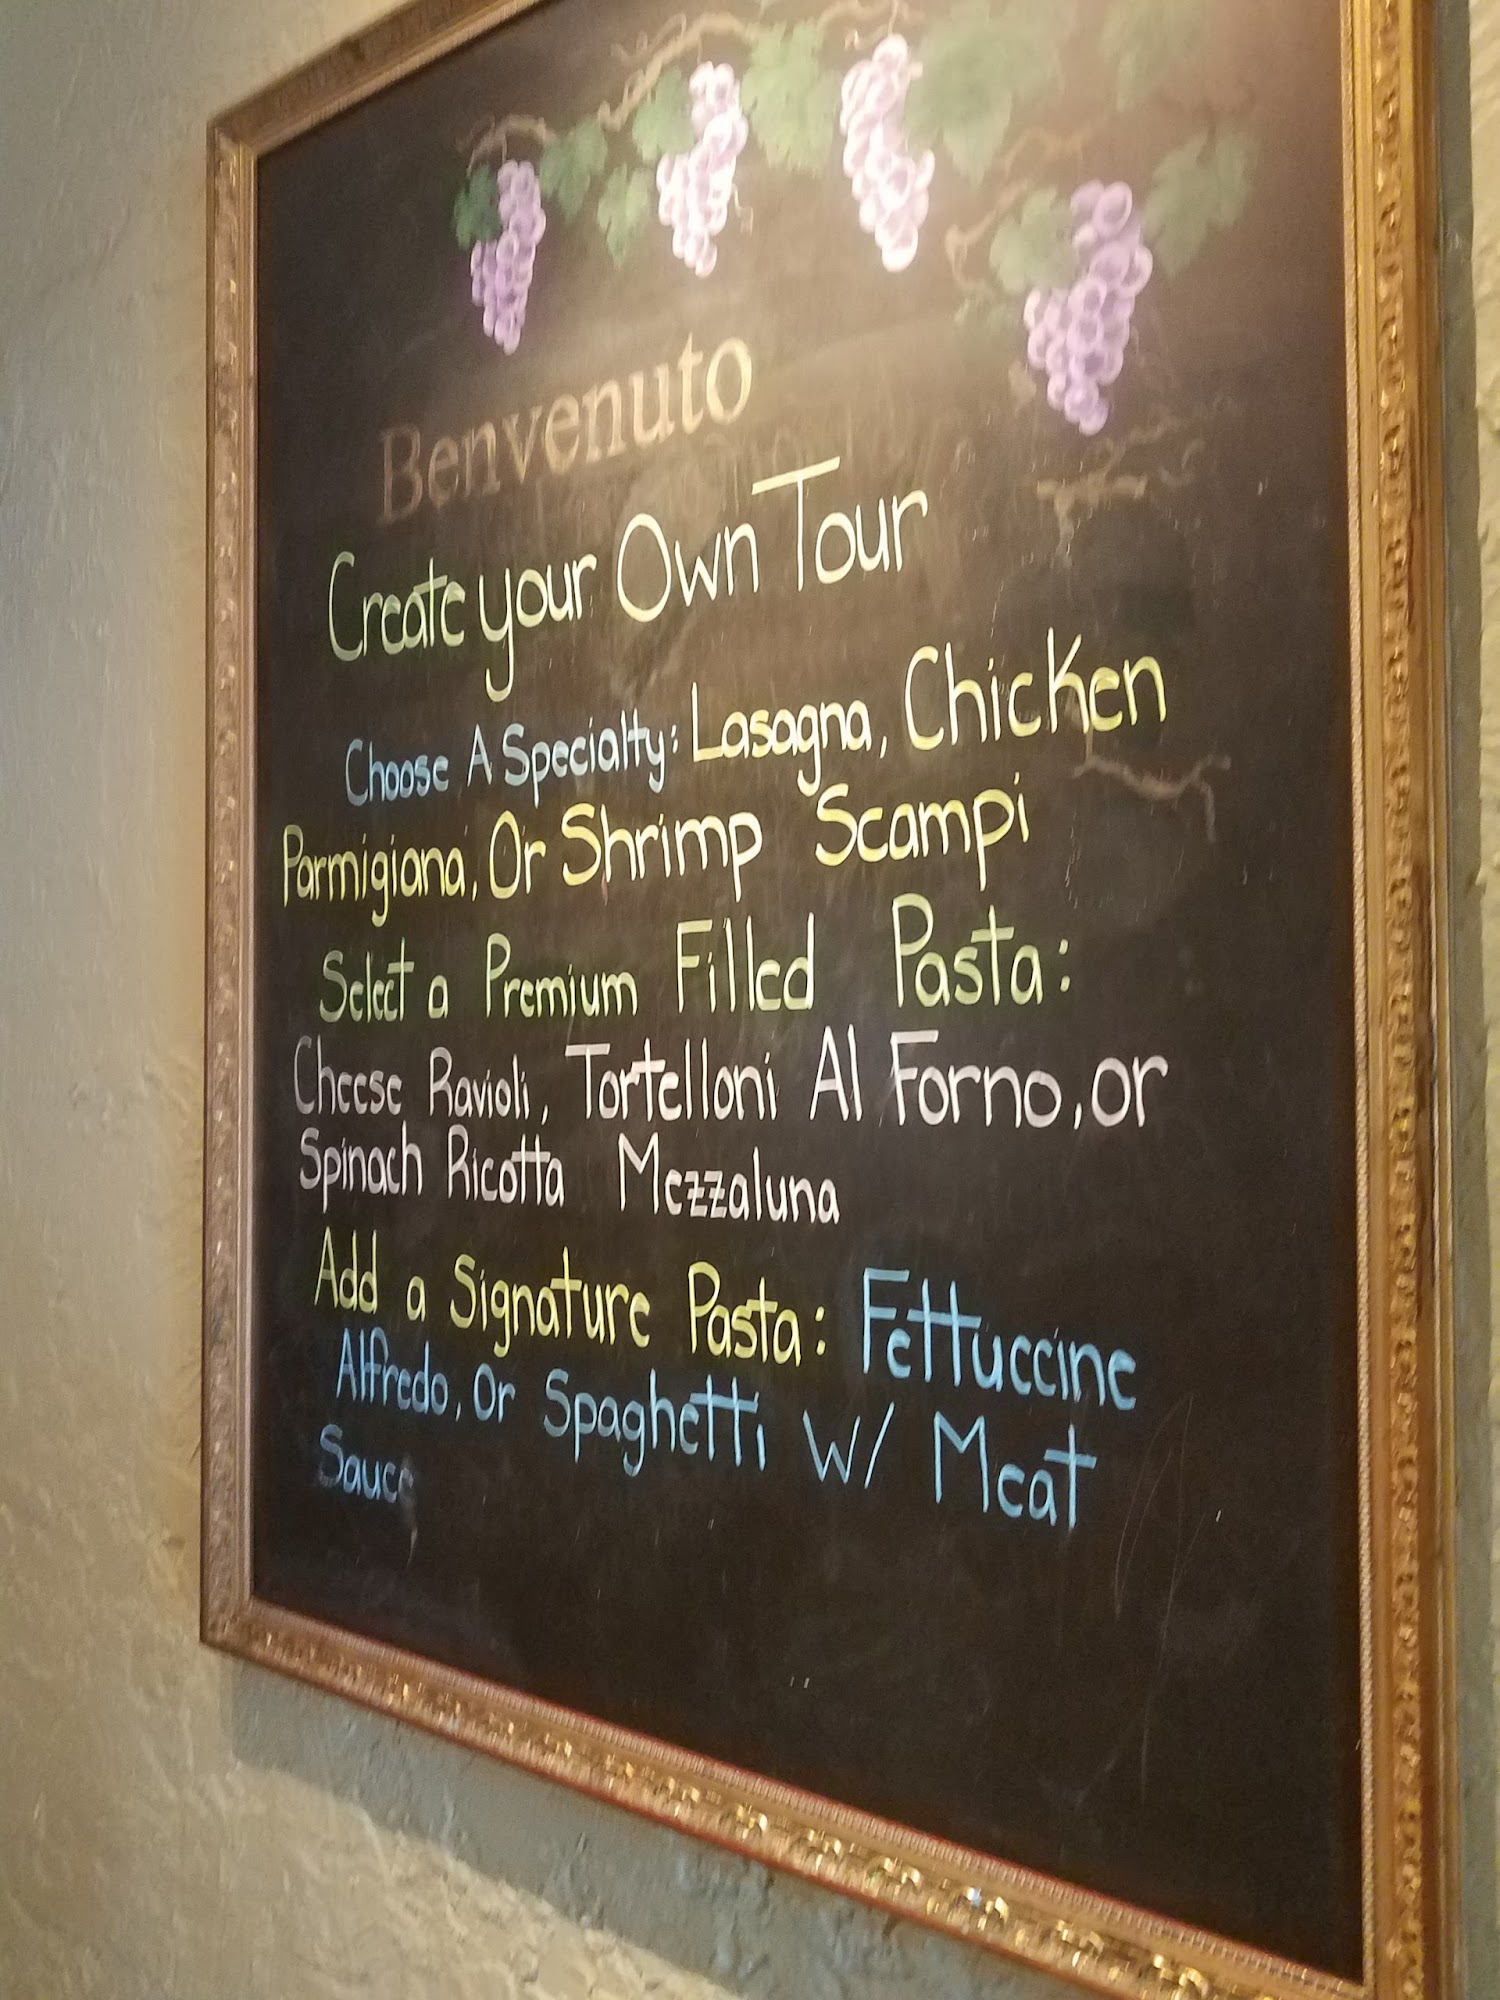 Benvenuto
Create your Own Tour
Choose A Specialty: Lasagna, Chicken
Parmigiana, Or Shrimp Scampi
Select a Premium Filled Pasta:
Cheese Ravioli, Tortelloni Al Forno, or
Spinach Ricotta Mezzaluna
Add a Signature Pasta: Fettuccine
Alfredo, Or Spaghetti W/ Meat
Sauce